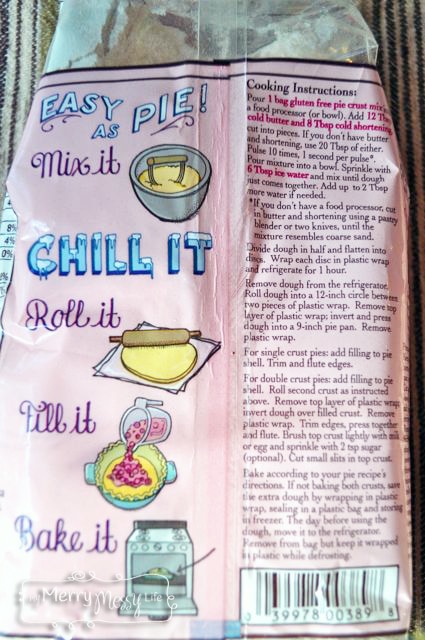 EASY
AS
PIE!
Mix it
CHILL IT
Roll it
Fill it
Bake it
8%
4%
0%
Cooking Instructions:
Pour 1 bag gluten free pie crust mix
a food processor (or bowl). Add 12
cold butter and 8 Tbsp cold shortening,
cut into pieces. If you don't have butter
and shortening, use 20 Tbsp of either.
Pulse 10 times, 1 second per pulse*.
Pour mixture into a bowl. Sprinkle with
6 Tbsp ice water and mix until dough
just comes together. Add up to 2 Tbsp
more water if needed.
*If you don't have a food processor, cut
in butter and shortening using a pastry
blender or two knives, until the
mixture resembles coarse sand.
Divide dough in half and flatten into
discs. Wrap each disc in plastic wrap
and refrigerate for 1 hour.
Remove dough from the refrigerator.
Roll dough into a 12-inch circle between
two pieces of plastic wrap. Remove top
layer of plastic wrap; invert and press
dough into a 9-inch pie pan. Remove
plastic wrap.
For single crust pies: add filling to pie
shell. Trim and flute edges.
For double crust pies: add filling to pie
shell. Roll second crust as instructed
above. Remove top layer of plastic wrap,
invert dough over filled crust. Remove
plastic wrap. Trim edges, press together
and flute. Brush top crust lightly with milk
or egg and sprinkle with 2 tsp sugar
(optional). Cut small slits in top crust.
Bake according to your pie recipe's
directions. If not baking both crusts, save
the extra dough by wrapping in plastic
wrap, sealing in a plastic bag and storing
in freezer. The day before using the
dough, move it to the refrigerator.
Remove from bag but keep it wrapped
in plastic while defrosting.
0 39978 00389 8
My Merry Messy Life